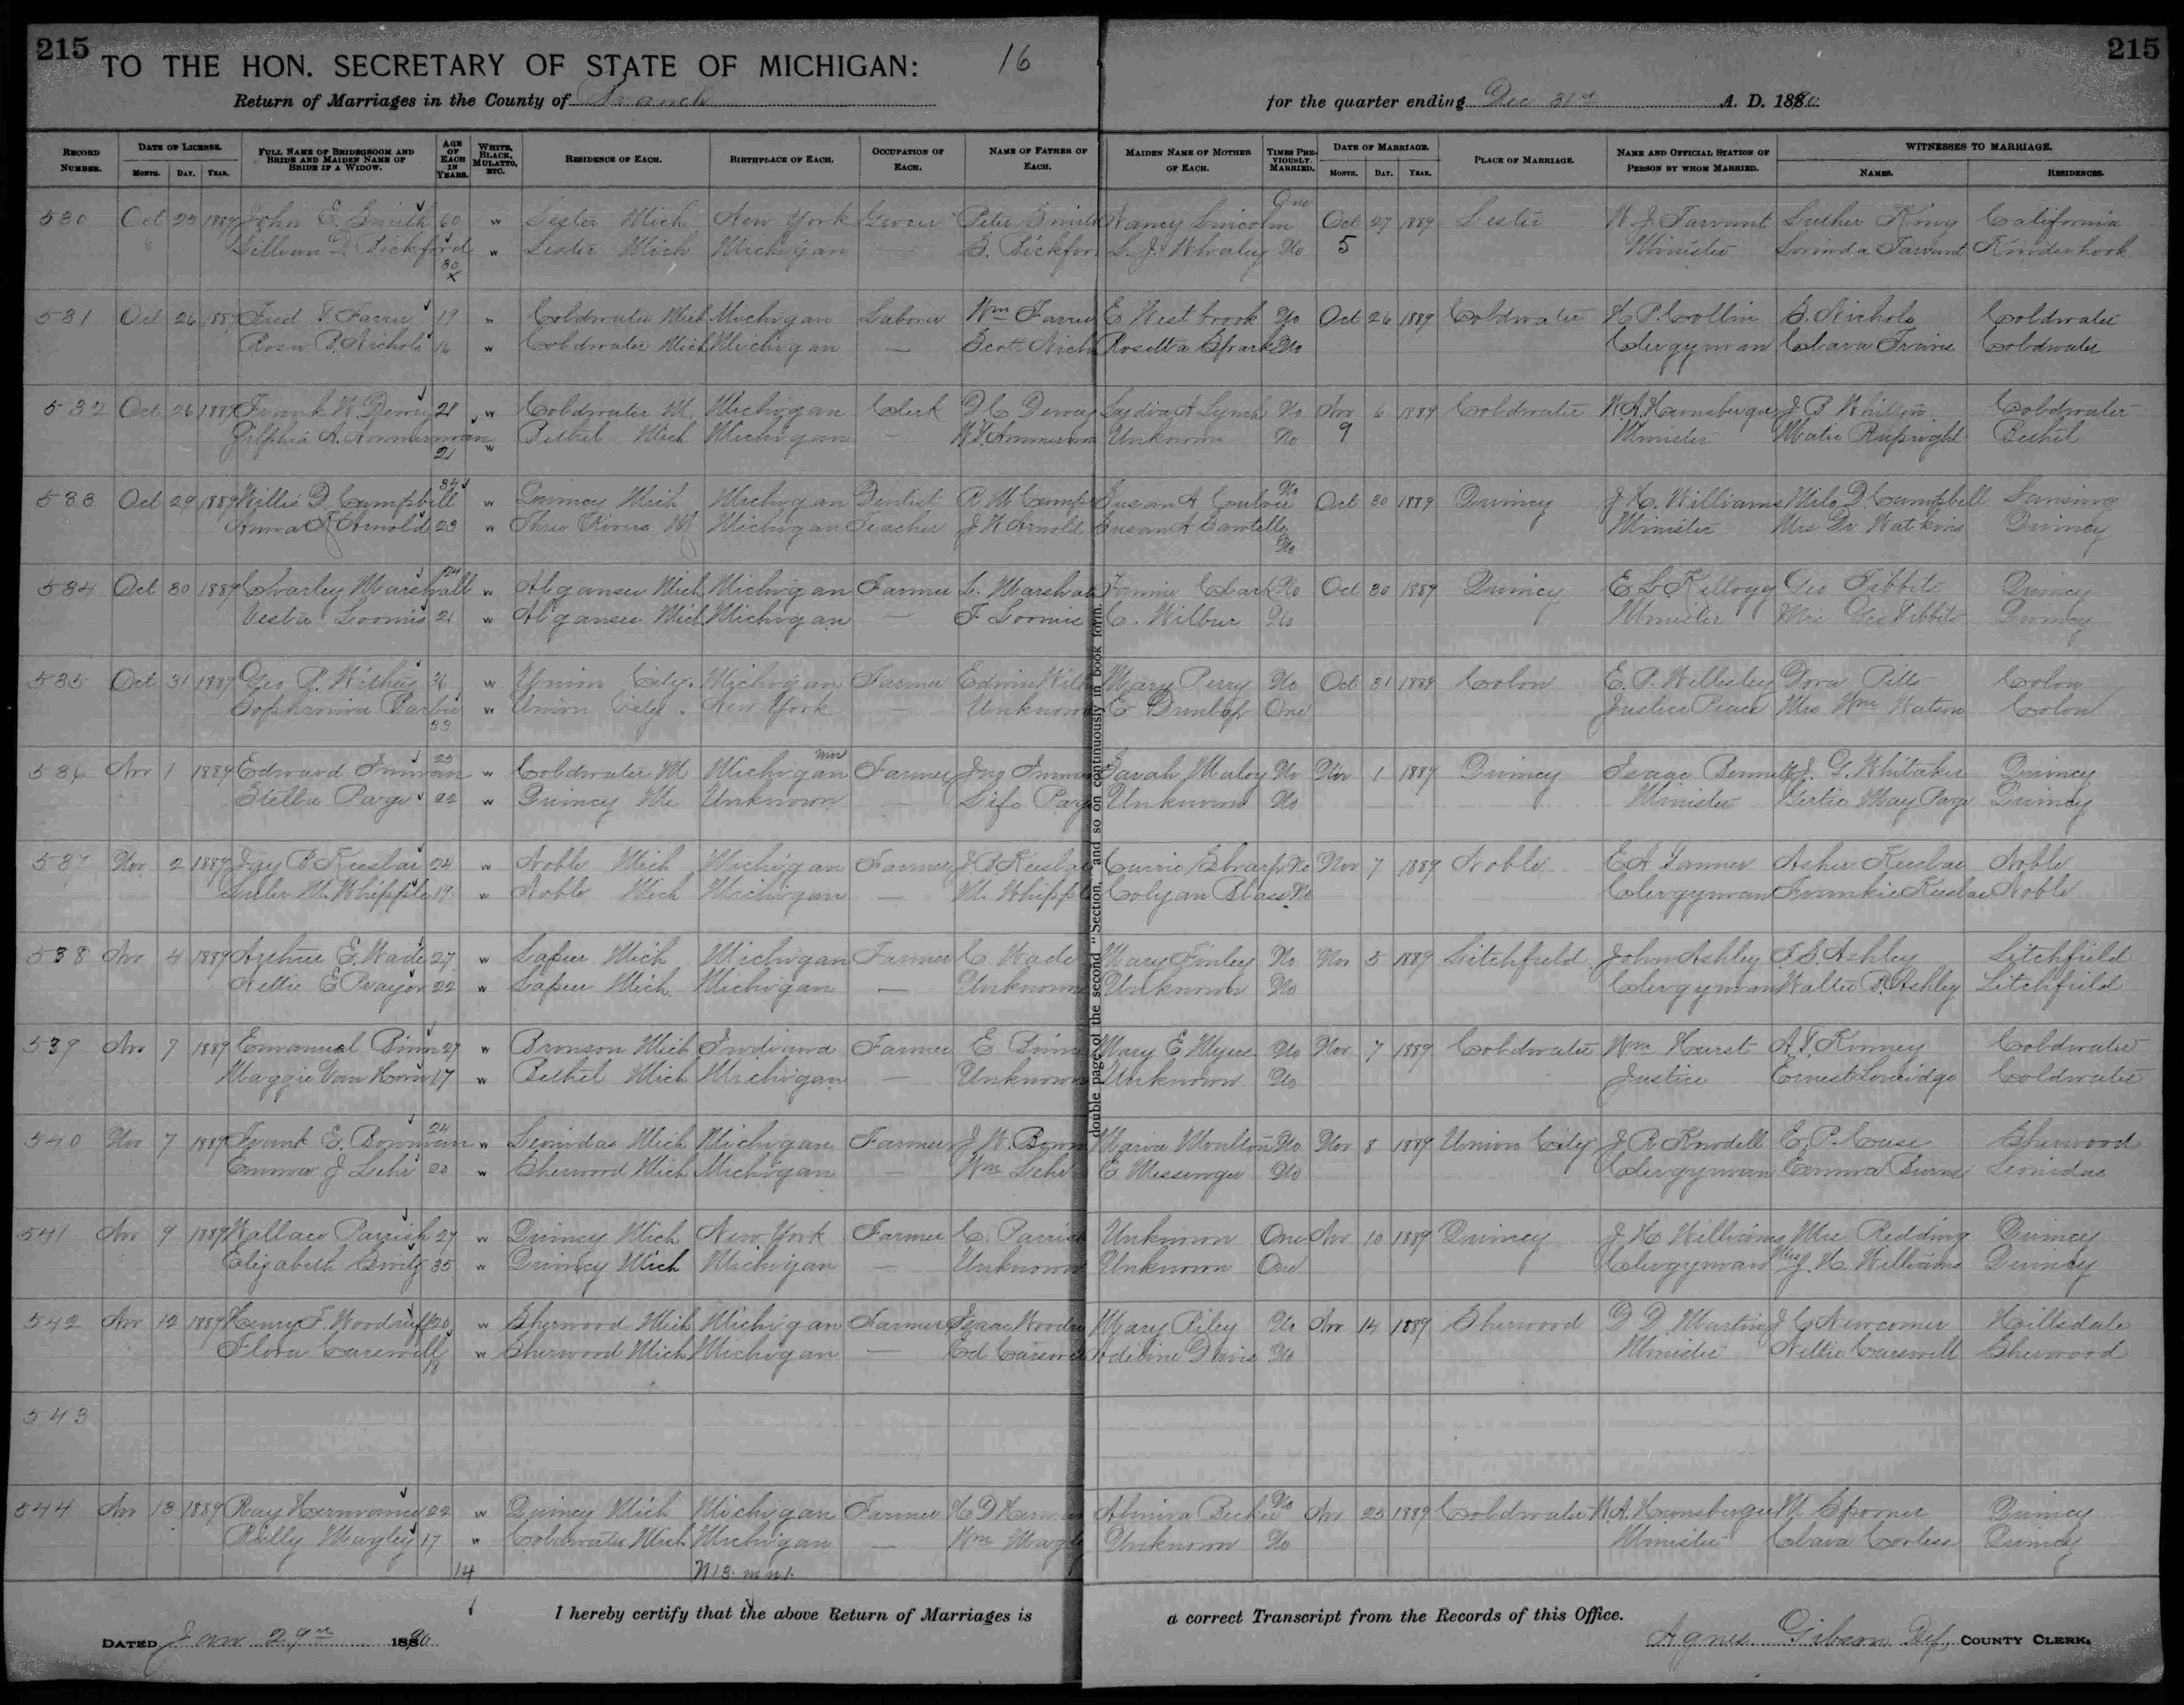 215
215
TO THE HON. SECRETARY OF STATE OF MICHIGAN:
16
Return of Marriages in the County of Branch for the quarter ending Dec 31st A. D. 188
RECORD NUMBER. DATE OF LICENSE. MONTH. DAY. YEAR. FULL NAME OF BRIDEGROOM AND BRIDE AND MAIDEN NAME OF BRIDE IF A WIDOW. AGE OF EACH IN YEARS. WHITE, BLACK, MULATTO, ETC. RESIDENCE OF EACH. BIRTHPLACE OF EACH. OCCUPATION OF EACH. NAME OF FATHER OF EACH. MAIDEN NAME OF MOTHER OF EACH. TIMES PREVIOUSLY MARRIED. DATE OF MARRIAGE. MONTH. DAY. YEAR. PLACE OF MARRIAGE. NAME AND OFFICIAL STATION OF PERSON BY WHOM MARRIED. WITNESSES TO MARRIAGE. NAMES. RESIDENCES.
530 Oct 25 1889 John E. Smith 60 w Lester Mich New York Grocer Peter Smith Nancy Lincoln One Oct 27 1889 Lester W J Tarrant Luther King California
Lillian D Bickford 30 w Lester Mich Michigan — B. Bickford L. J. Whaley No 5 Minister Lorinda Tarrant Kinderhook
531 Oct 26 1889 Fred Farrier 19 w Coldwater Mich Michigan Laborer Wm Farrier E Westbrook No Oct 26 1889 Coldwater H. P. Collin S. Nichols Coldwater
Rosa B. Nichols 16 w Coldwater Mich Michigan — Scott Nich Rosetta Sparks No Clergyman Clara Travis Coldwater
532 Oct 26 1889 Frank W. Dewey 28 w Coldwater M. Michigan Clerk D C Dewey Lydia A Lynch No Nov 6 1889 Coldwater W. A. Hunsberger J B Whitten Coldwater
Zilphia A. Ammerman 21 w Bethel Mich Michigan — Ammerman Unknown No 9 Minister Matie Rupright Bethel
533 Oct 29 1889 Willis D Campbell 34 w Quincy Mich Michigan Dentist R M Camp Susan A No Oct 30 1889 Quincy J. H. Williams Milo D. Campbell Lansing
Anna Arnold 23 w Three Rivers M Michigan Teacher J W Arnold Susan A Sawtelle No Minister Mrs Dr Watkins Quincy
534 Oct 30 1889 Charley Marshall 24 w Algansee Mich Michigan Farmer L. Marshall Fannie Clark No Oct 30 1889 Quincy E L Kellogg Geo Tibbits Quincy
Vesta Loomis 21 w Algansee Mich Michigan — F Loomis C. Wilbur No Minister Mrs Geo Tibbits Quincy
535 Oct 31 1889 Geo P. 36 w Union City Michigan Farmer Edwin Mary Perry No Oct 31 1889 Colon E. P. Dora Pitts Colon
Sophronia 33 w Union City New York — Unknown E Dunlap One Justice Peace Mrs Wm Watson Colon
536 Nov 1 1889 Edward Inman 25 w Coldwater M Michigan Farmer Jno Inman Sarah Maloy No Nov 1 1889 Quincy Isaac Bennett J. G. Whitaker Quincy
Stella Page 22 w Quincy Mc Unknown — Page Unknown No Minister Gertie May Page Quincy
537 Nov 2 1889 Jay B Keesbar 24 w Noble Mich Michigan Farmer J. B Keesbar Carrie Sharp No Nov 7 1889 Noble E A Tanner Asher Keesbar Noble
M. Whipple 19 w Noble Mich Michigan — M. Whipple No Clergyman Frankie Keesbar Noble
538 Nov 4 1889 Arthur E. Wade 27 w Lapeer Mich Michigan Farmer C Wade Mary Finley No Nov 5 1889 Litchfield John Ashley T. S. Ashley Litchfield
Nettie E Pryor 22 w Lapeer Mich Michigan — Unknown Unknown No Clergyman Walter B. Ashley Litchfield
539 Nov 7 1889 Emanuel Binn 27 w Bronson Mich Indiana Farmer E Binn Mary E Myers No Nov 7 1889 Coldwater Wm Hurst A. Kinney Coldwater
Maggie Van Horn 17 w Bethel Mich Michigan — Unknown Unknown No Justice Ernest Loveridge Coldwater
540 Nov 7 1889 Frank E. Bowman 24 w Leonidas Mich Michigan Farmer J. W. Bown Maria Moulton No Nov 8 1889 Union City J R Knodell E. P. Case Sherwood
Emma J Lehr 20 w Sherwood Mich Michigan — Wm Lehr E Messenger No Clergyman Emma Burns Leonidas
541 Nov 9 1889 Wallace Parrish 27 w Quincy Mich New York Farmer C. Parrish Unknown One Nov 10 1889 Quincy J H Williams Mrs Redding Quincy
Elizabeth 35 w Quincy Mich Michigan — Unknown Unknown One Clergyman Mrs J. H. Williams Quincy
542 Nov 12 1889 Henry F. Woodruff 20 w Sherwood Mich Michigan Farmer Isaac Woodru Mary Riley No Nov 14 1889 Sherwood D D Martin J C Newcomer Hillsdale
Flora Carswell 18 w Sherwood Mich Michigan — Ed Carswell Adeline Davis No Minister Nettie Carswell Sherwood
543
544 Nov 13 1889 Ray Hermance 22 w Quincy Mich Michigan Farmer H D Herm Almira Becker No Nov 25 1889 Coldwater W. A. Hunsberger M Spooner Quincy
Magley 17 w Coldwater Mich Michigan — Wm Magle Unknown No Minister Clara Corless Quincy
14
double page of the second "Section, and so on continuously in book form.
I hereby certify that the above Return of Marriages is a correct Transcript from the Records of this Office.
DATED Jan 29th 1890
Agnes Gibson Dep. COUNTY CLERK.